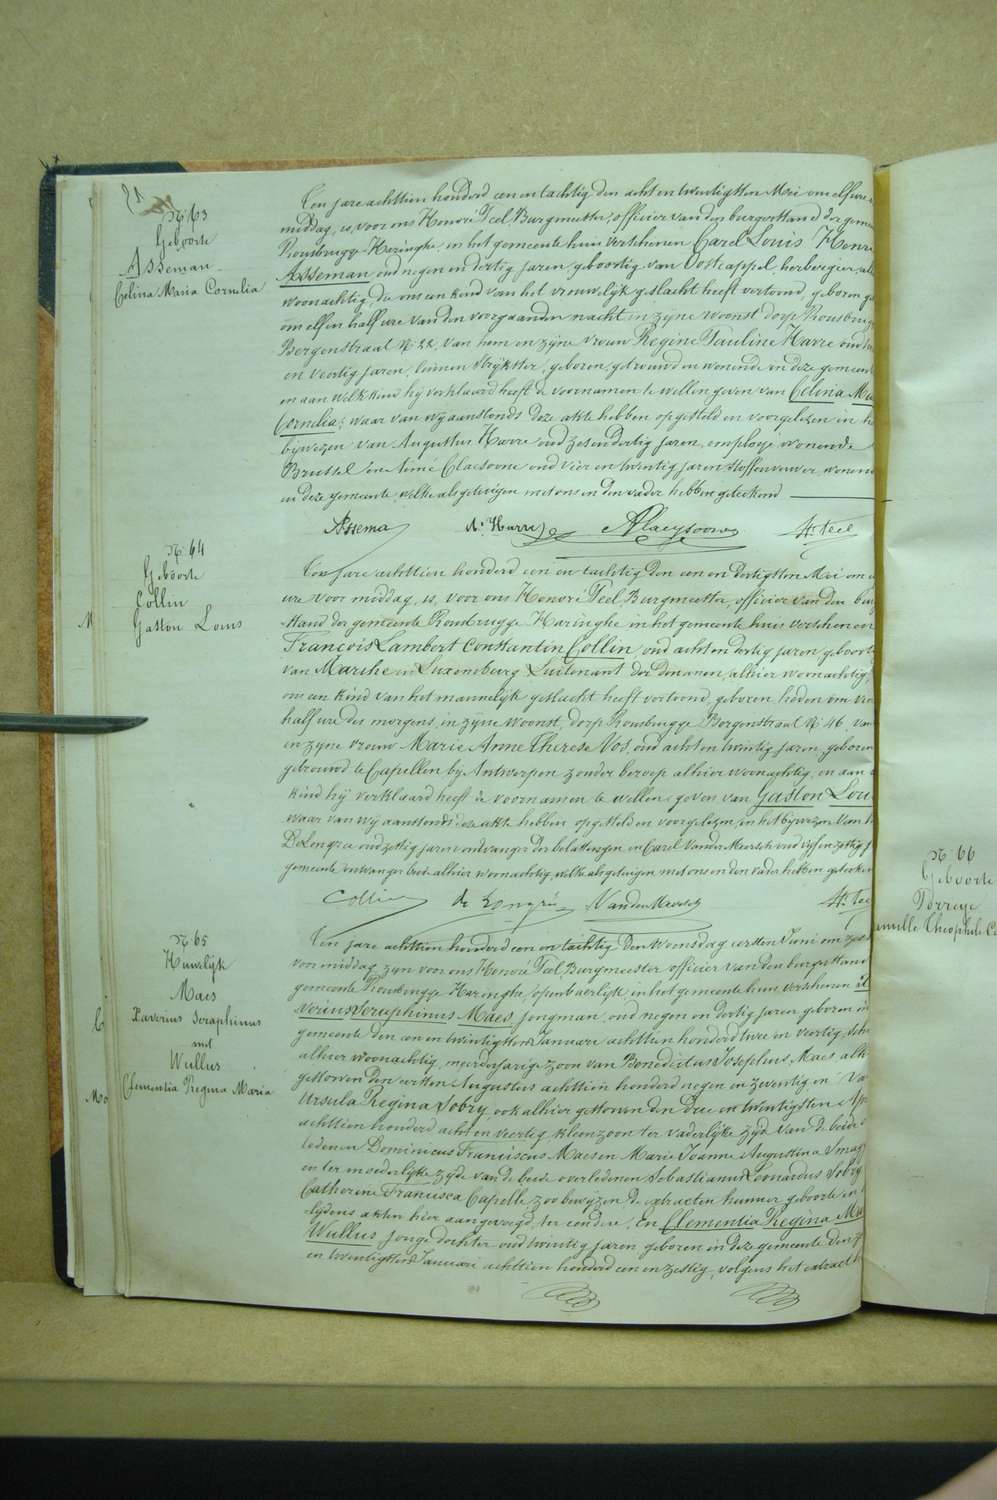 21
N: 63
Geboorte
Asseman
Celina Maria Cornelia
Ten jare achttien honderd een en tachtig den acht en twintigsten Mei om elf ure
middag, is, voor ons Honoré Teel, Burgmeester, officier van den burgerstand der geme
Rousbrugge-Haringhe, in het gemeente huis verschenen Carel Louis Honoré
Asseman oud negen en dertig jaren, geboortig van Oostcappel, herbergier, al
woonachtig, die ons een kind van het vrouwelijk geslacht heeft vertoond, geboren
om elf en half ure van den voorgaanden nacht in zijne woonst dorp Rousbrug
Bergenstraat N: 22, van hem en zijne vrouw Regine Pauline Harre oud
en veertig jaren, linnen strijkster, geboren, getrouwd en wonende in deze gemeen
en aan welk kind hij verklaard heeft de voornamen te willen geven van Celina Ma
Cornelia; waar van wij aanstonds deze akte hebben opgesteld en voorgelezen in h
bijwezen van Augustus Harre oud zes en dertig jaren, employe wonende
Brussel en Aimé Claesoone oud vier en twintig jaren stoffenverwer wonend
in deze gemeente, welke als getuigen met ons en den vader hebben geteekend
Assema A. Harre A Claeysoone H. Teel
N: 64
Geboorte
Collin
Gaston Louis
M
Ten jare achttien honderd een en tachtig den een en dertigsten Mei om
ure voor middag, is, voor ons Honoré Teel, Burgmeester, officier van den burg
stand der gemeente Rousbrugge Haringhe in het gemeente huis verschenen
François Lambert Constantin Collin, oud acht en dertig jaren geboort
van Marche in Luxemburg, Luitenant der douanen, alhier woonachtig,
ons een kind van het mannelijk geslacht heeft vertoond, geboren heden om vier
half ure des morgens, in zijne woonst, dorp Rousbrugge Bergenstraat N: 46 van
en zijne vrouw Marie Anne Therese Vos, oud acht en twintig jaren, geboren
getrouwd te Capellen bij Antwerpen zonder beroep alhier woonachtig, en aan
kind hij verklaard heeft de voornamen te willen geven van Gaston Lou
waar van wij aanstonds deze akte hebben opgesteld en voorgelezen, in het bijwezen van
De Longrée oud zestig jaren ontvanger der belastingen en Carel Vander Meersch oud vijf en zestig j
gemeente ontvanger beide alhier woonachtig, welke als getuigen met ons en den vader hebben geteeken
Collin de Longrée VandenMeersch H. Tee
N: 65
Huwelijk
Maes
Xaverius Seraphinus
met
Wullus
Clementia Regina Maria
Ten jare achttien honderd een en tachtig den Woensdag eersten Juni om zes
voor middag zijn voor ons Honoré Teel, Burgmeester officier van den burgerstand
gemeente Rousbrugge Haringhe, openbaerlijk in het gemeente huis verschenen
verius Seraphinus Maes, jongman, oud negen en dertig jaren geboren in
gemeente den een en twintigsten Januarii achttien honderd twee en veertig,
alhier woonachtig, meerderjarige zoon van Benedictus Josephus Maes, alh
gestorven den eersten Augustus achttien honderd negen en zeventig en van
Ursula Regina Sobry, ook alhier gestorven den drie en twintigsten Apr
achttien honderd acht en veertig, kleenzoon ter vaderlijke zijde van de beide
ledenen Dominicus Franciscus Maes en Marie Joanne Augustina Smag
en ter moederlijke zijde van de beide overledenen Sebastianus Leonardus Sobry
Catherine Francisca Capelle, zoo bewijzen de extracten hunner geboorte en
lijdens akten hier aangevoegd, ter eendere. En Clementia Regina Ma
Wullus jonge dochter oud twintig jaren geboren in deze gemeente den
en twintigsten Januari achttien honderd een en zestig, volgens het extract
N: 66
Geboorte
Camille Theophile Co